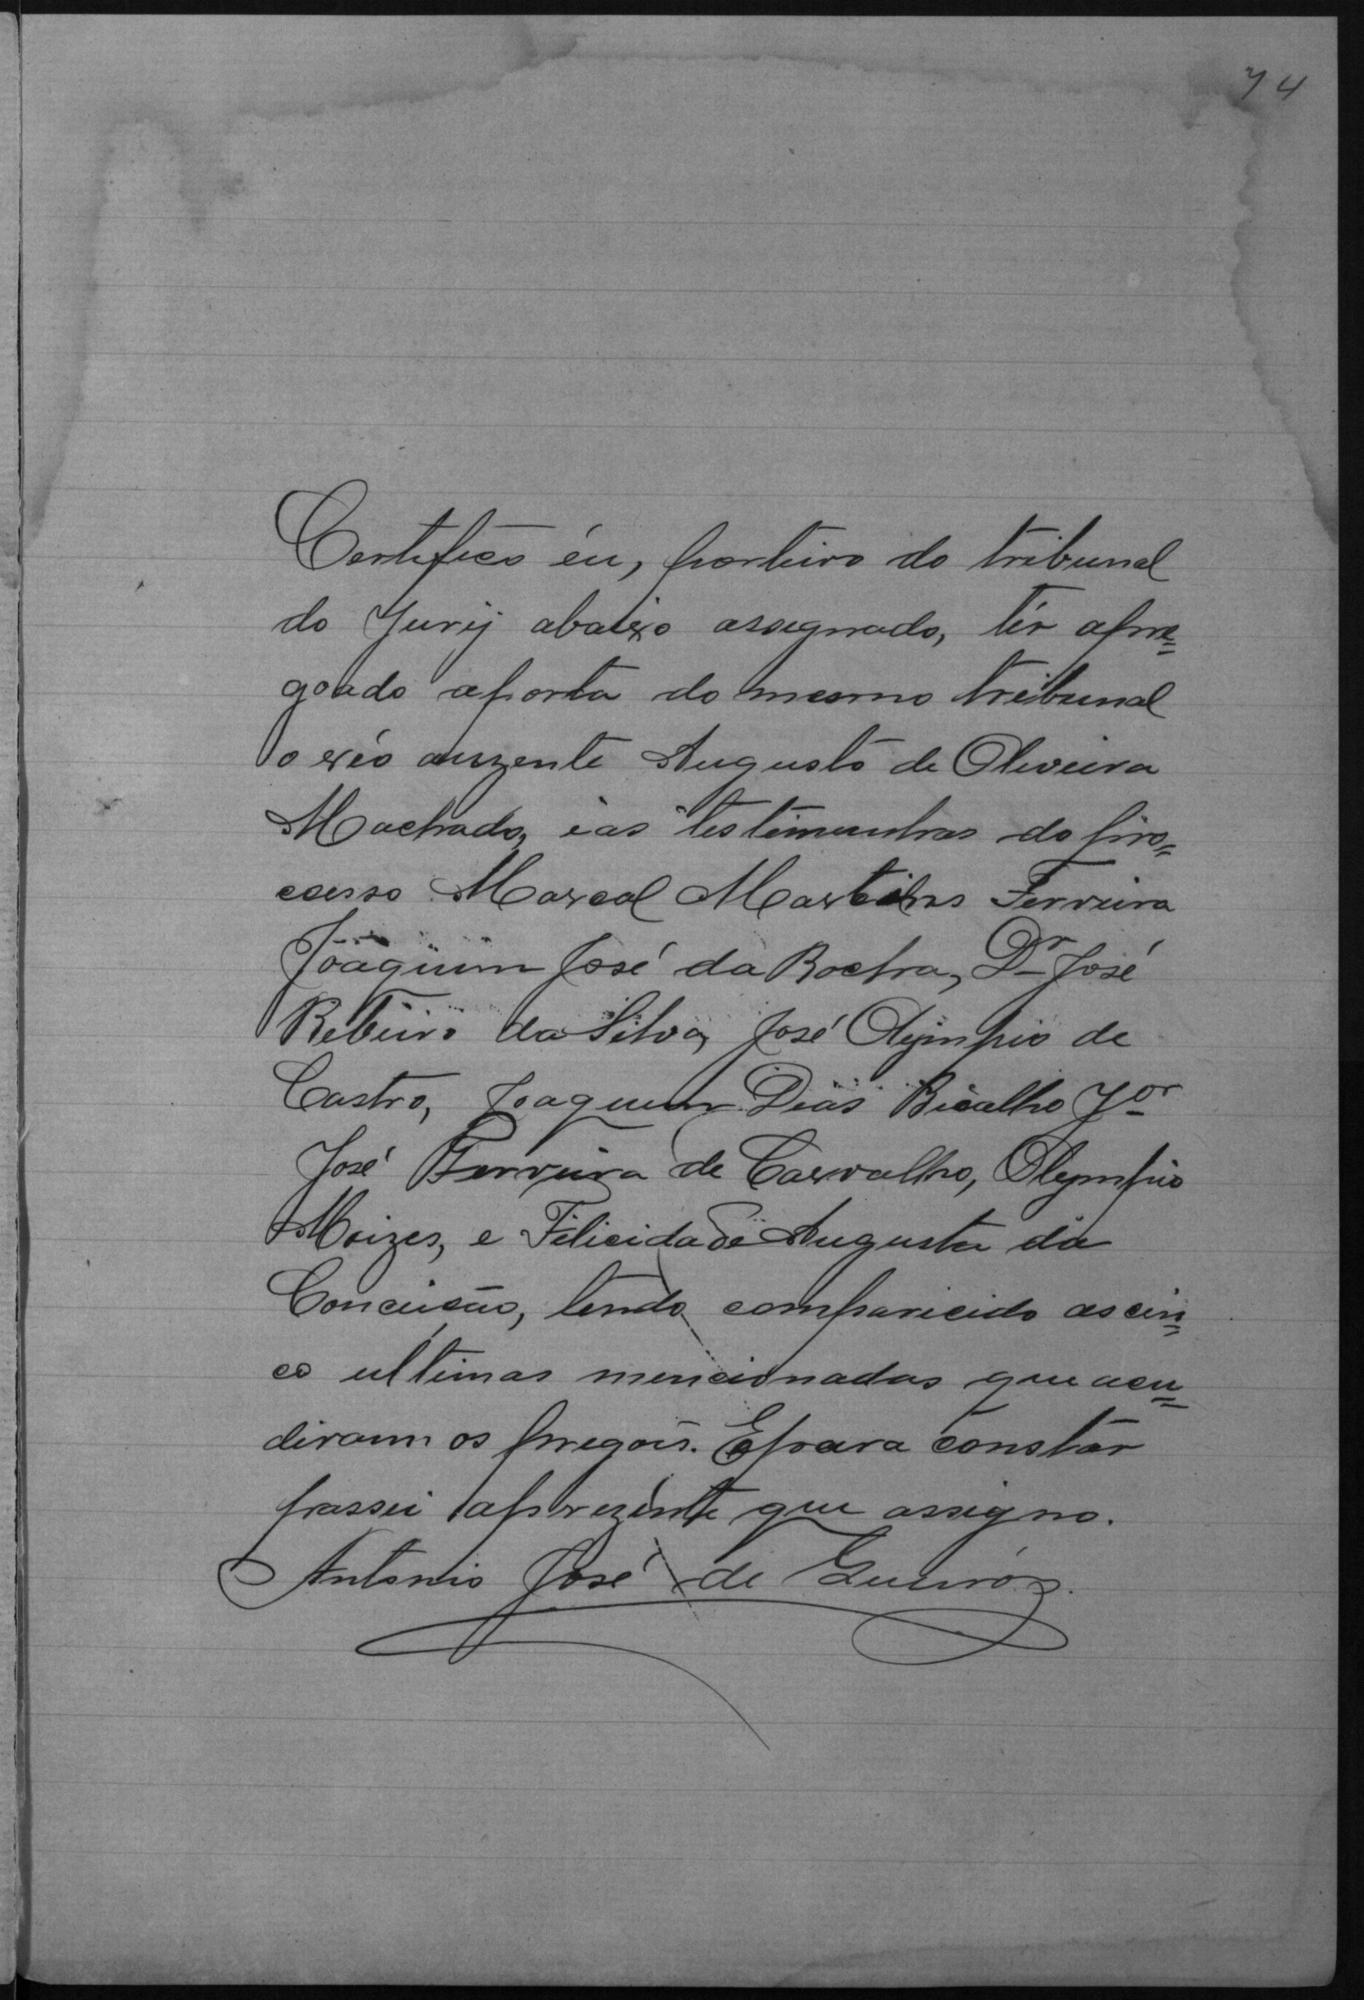 74
Certifico éu, porteiro do tribunal
do Jury abaixo assignado, tér apre=
goado aporta do mesmo tribunal
o réo auzente Augusto de Oliveira
Machado, e as testemunhas do pro=
cesso Marcal Martins Ferreira
Joaquim José da Rocha, Dr José
Ribeiro da Silva, José Olympio de
Castro, Joaquim Dias Bicalho Jor
José Ferreira de Carvalho, Olympio
Moizes, e Filicidade Augusta da
Conceicão, tendo comparicido as cin=
co ultimas mencionadas que acu=
diram os pregois. E para constar
passei aprezente que assigno.
Antonio José de Queiróz.